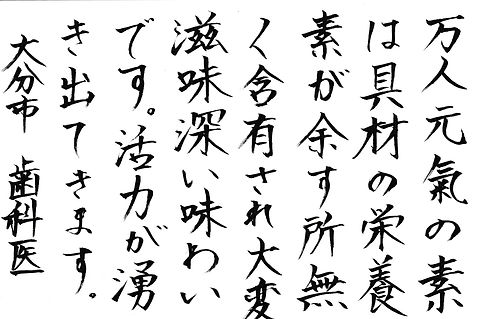 万人元氣の素
は具材の栄養
素が余す所無
く含有され大変
滋味深い味わい
です。活力が湧
き出てきます。
大分市 歯科医